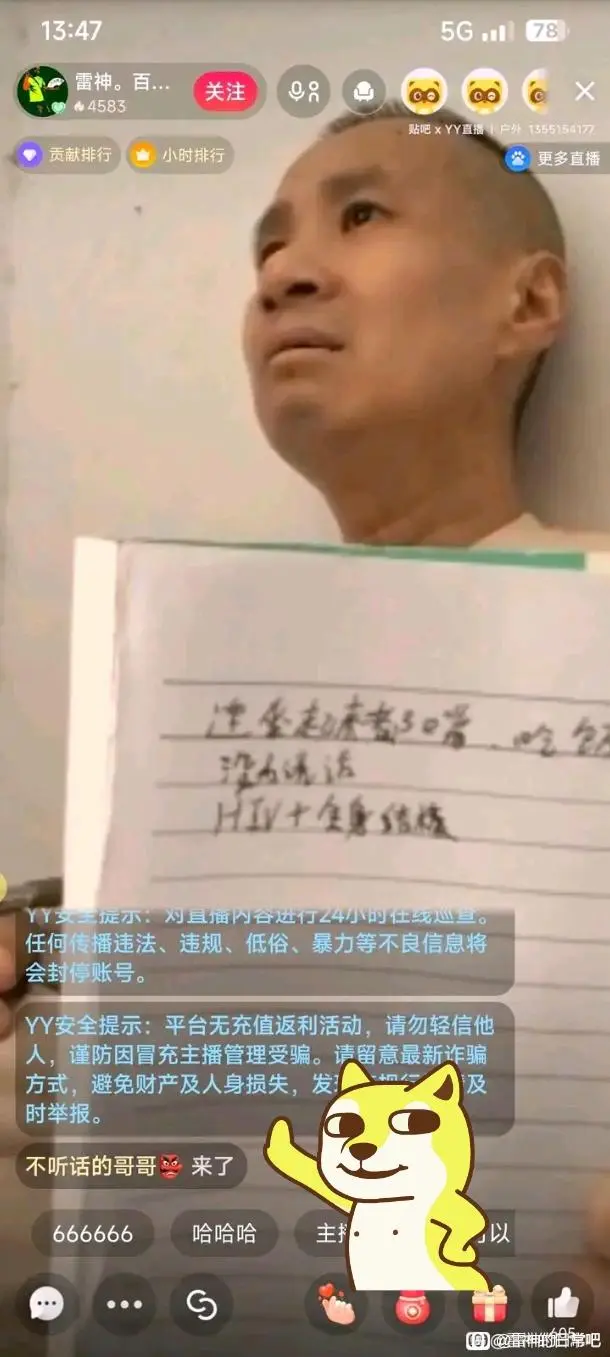 13:47
5G
78
雷神。百...
4583
关注
贴吧 x YY直播 | 户外 1355154177
贡献排行
小时排行
更多直播
没办法说话
HIV+全身结核
YY安全提示：对直播内容进行24小时在线巡查。
任何传播违法、违规、低俗、暴力等不良信息将
会封停账号。
YY安全提示：平台无充值返利活动，请勿轻信他
人，谨防因冒充主播管理受骗。请留意最新诈骗
方式，避免财产及人身损失，发
及
时举报。
不听话的哥哥👺 来了
666666
哈哈哈
主播
可以
605
@雷神的日常吧